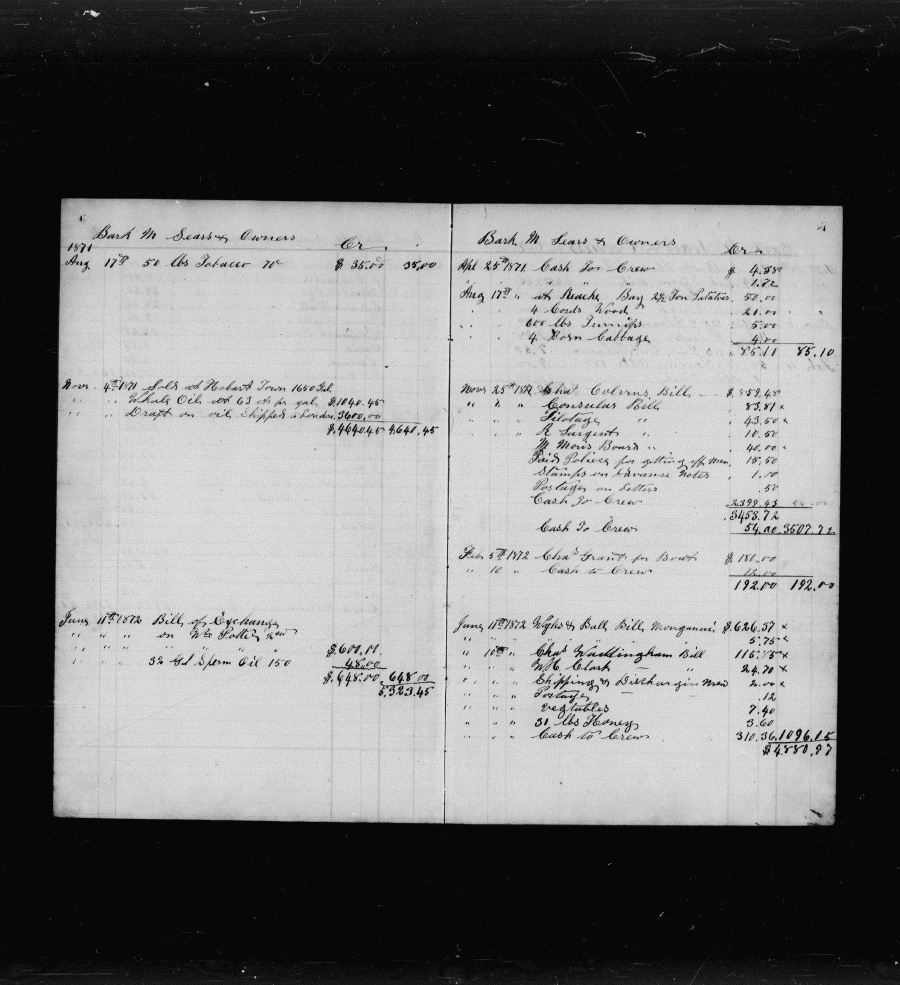 6
Bark M Sears & Owners
Cr
1871
Aug 17th 50 lbs Tobacco 70 $35.00 35.00
Novr 4th 1871 Sold at Hobart Town 1650 Gal
" " Whale Oil at 63 cts pr gal $1040.45
" " Draft on oil Shipped London 3600.00
$4640.45 4640.45
June 11th 1872 Bill of Exchange
" " " on Wm Potter 2nd
" " " $600.00
" " " 32 Gal Sperm Oil 150 48.00
$648.00 648.00
5323.45
7
Bark M Sears & Owners
Cr
Apl 25th 1871 Cash To Crew $ 4.38
" " 1.72
Aug 17th " at Bay 2½ Ton Potatoes 50.00
" " 4 Cords Wood 21.00
" " 600 lbs Turnips 5.00
" " 4 Dozn Cabbage 4.00
85.11 85.10
Novr 25th 1871 Chas Colvins Bill $859.48
" " " Consular Bill 83.81 x
" " " Pilotage " 43.50
" " " R Sargent " 10.50
M Moris Board " 40.00
Paid Police for getting off Men 15.50
Stamps on Advance Notes 1.00
Postage on Letters .50
Cash To Crew 2399.43 54.00
3453.72
Cash To Crew 54.00 3507.72
Feb 5th 1872 Chas Grant for Boat $180.00
" 10 " Cash to Crew 12.00
192.00 192.00
June 11th 1872 & Ball Bill Monganui $626.37 x
" " " " " " " 5.75 x
" 10th " Chas Waddingham Bill 115.85 x
" " " W H Clark — " 24.70 x
" " " Shipping & Discharging Men 2.00 x
" " " Postage — — .12
" " " Vegtables 7.40
" " " 31 lbs Honey 3.60
" " " Cash to Crew 310.36 1096.15
$4880.97